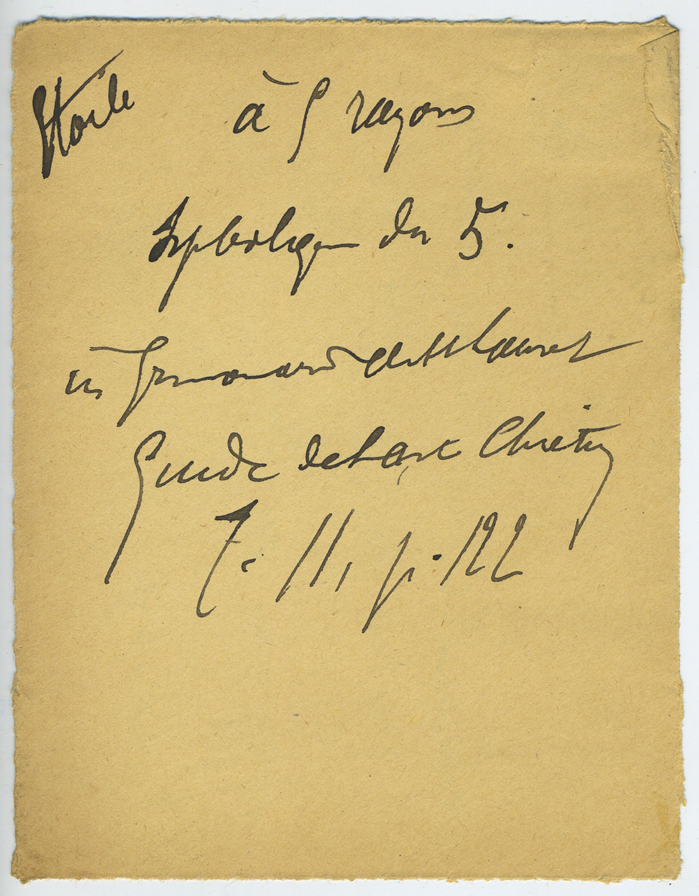 Etoile à 5 rayons
Symbolique du 5.
in Grimouard de St Laurent
Guide de l'art Chrétien
T. II, p. 122